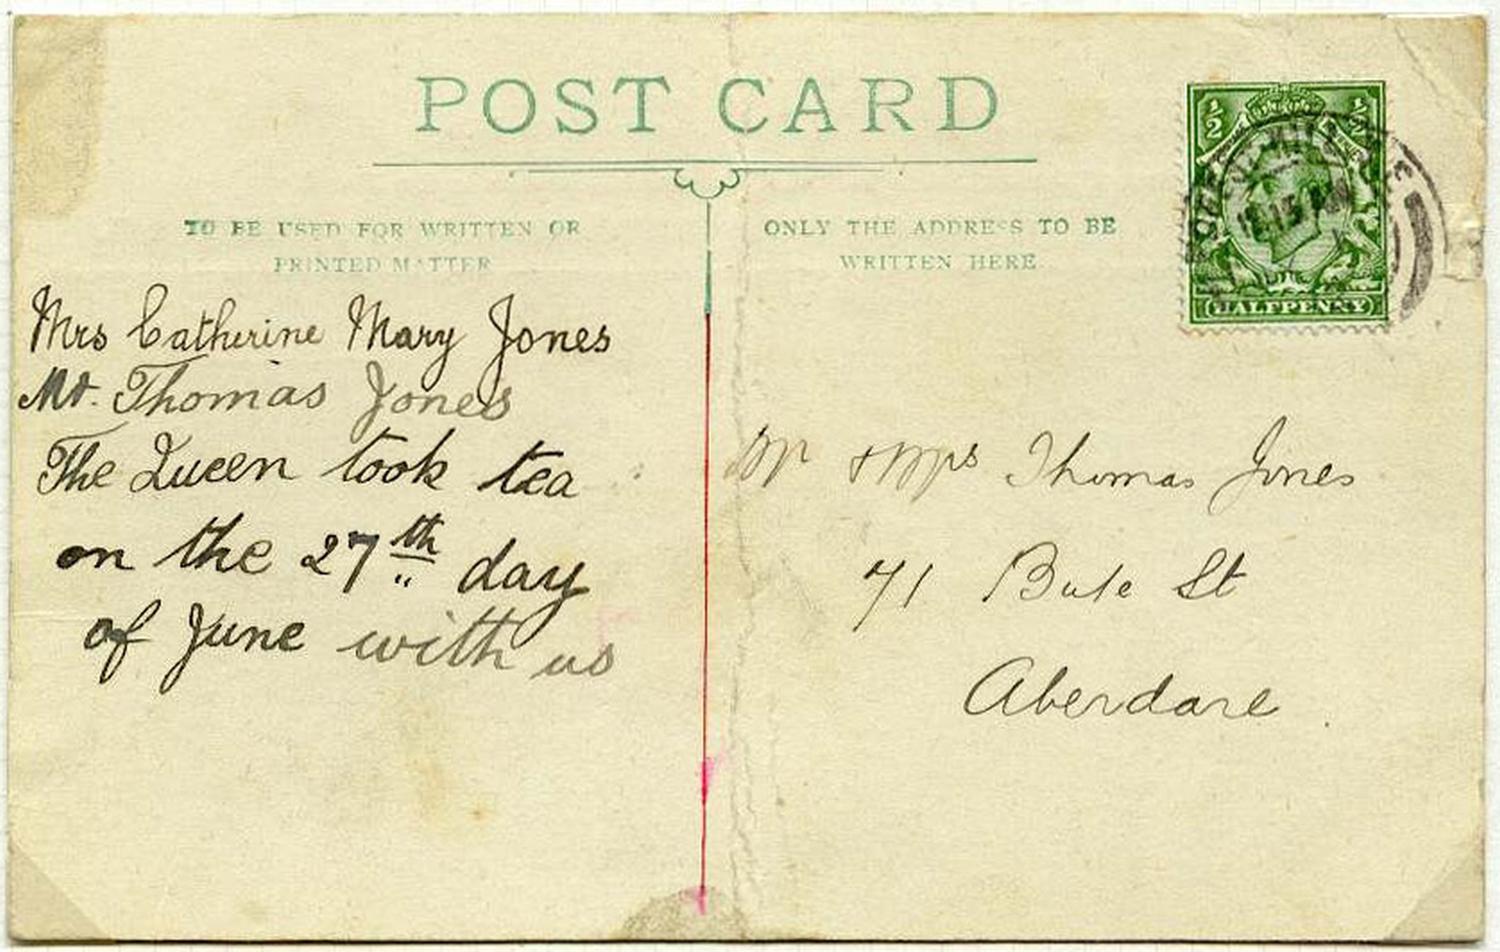 POST CARD
TO BE USED FOR WRITTEN OR
PRINTED MATTER
ONLY THE ADDRESS TO BE
WRITTEN HERE
Mrs Catherine Mary Jones
Mr. Thomas Jones
The Queen took tea
on the 27th day
of June with us
Mr & Mrs Thomas Jones
71 Bute St
Aberdare.
½ ½
HALFPENNY